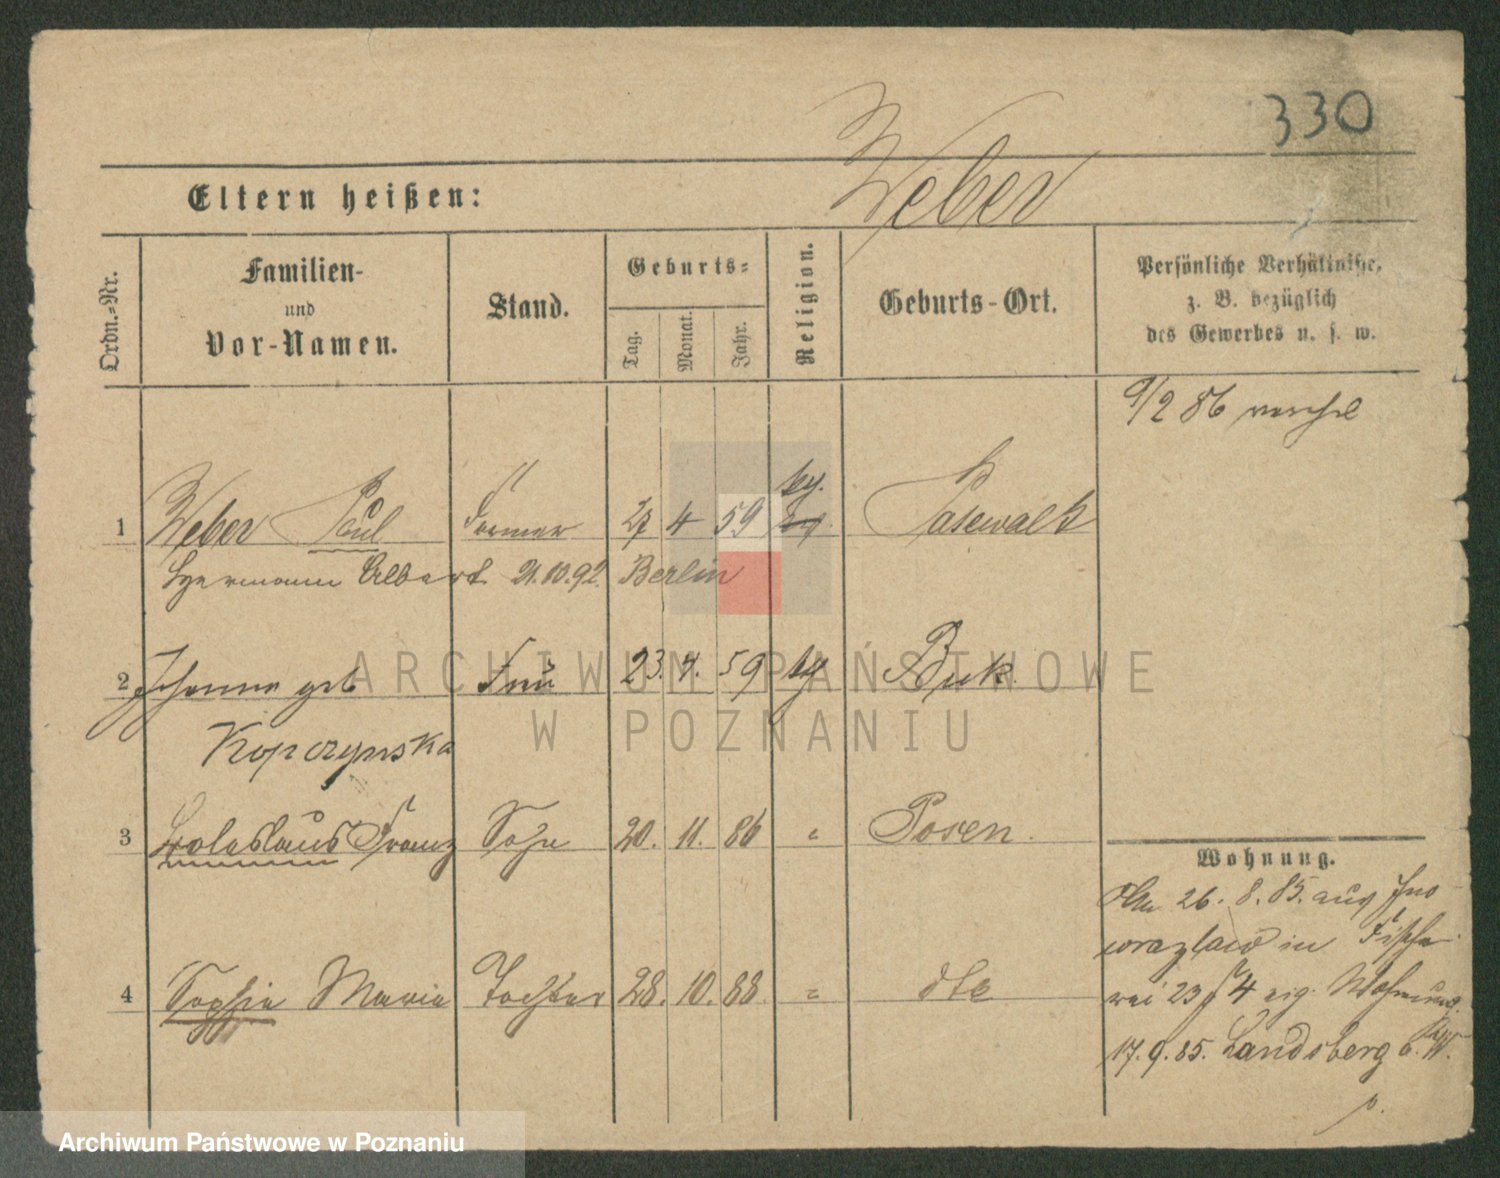 330
Weber
Eltern heißen:
Ordn.-Nr.
Familien-
und
Vor-Namen.
Stand.
Geburts-
Tag.
Monat.
Jahr.
Religion.
Geburts-Ort.
Persönliche Verhältnisse,
z. B. bezüglich
des Gewerbes u. s. w.
9/2 86
1 Weber Paul Former 27 4 59 Pasewalk
Hermann Albert 21.10.92. Berlin
2 Johanna geb Frau 23. 4. 59 Buk.
Kopczynska
3 Boleslaus Franz Sohn 20. 11. 86 " Posen.
4 Sophie Maria Tochter 28. 10. 88 " dto
Wohnung.
26. 8. 85. aus Ino
wrazlaw in Fische
rei 23 J 4 eig. Wohnung.
17. 9. 85. Landsberg a. W.
p.
ARCHIWUM PAŃSTWOWE
W POZNANIU
Archiwum Państwowe w Poznaniu